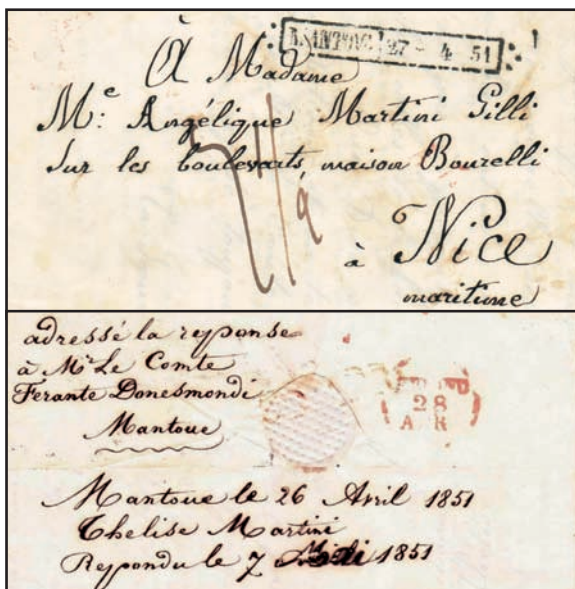 MANTOVA 27 4 51
à
A Madame
Me: Angélique Martini Gilli
sur les boulevarts maison Bourelli
à Nice
maritime
adressé la reponse
à Mr Le Comte
Ferante Donesmondi
Mantoue
28
Mantoue le 26 Avril 1851
Thelise Martini
Repondu le 7 1851